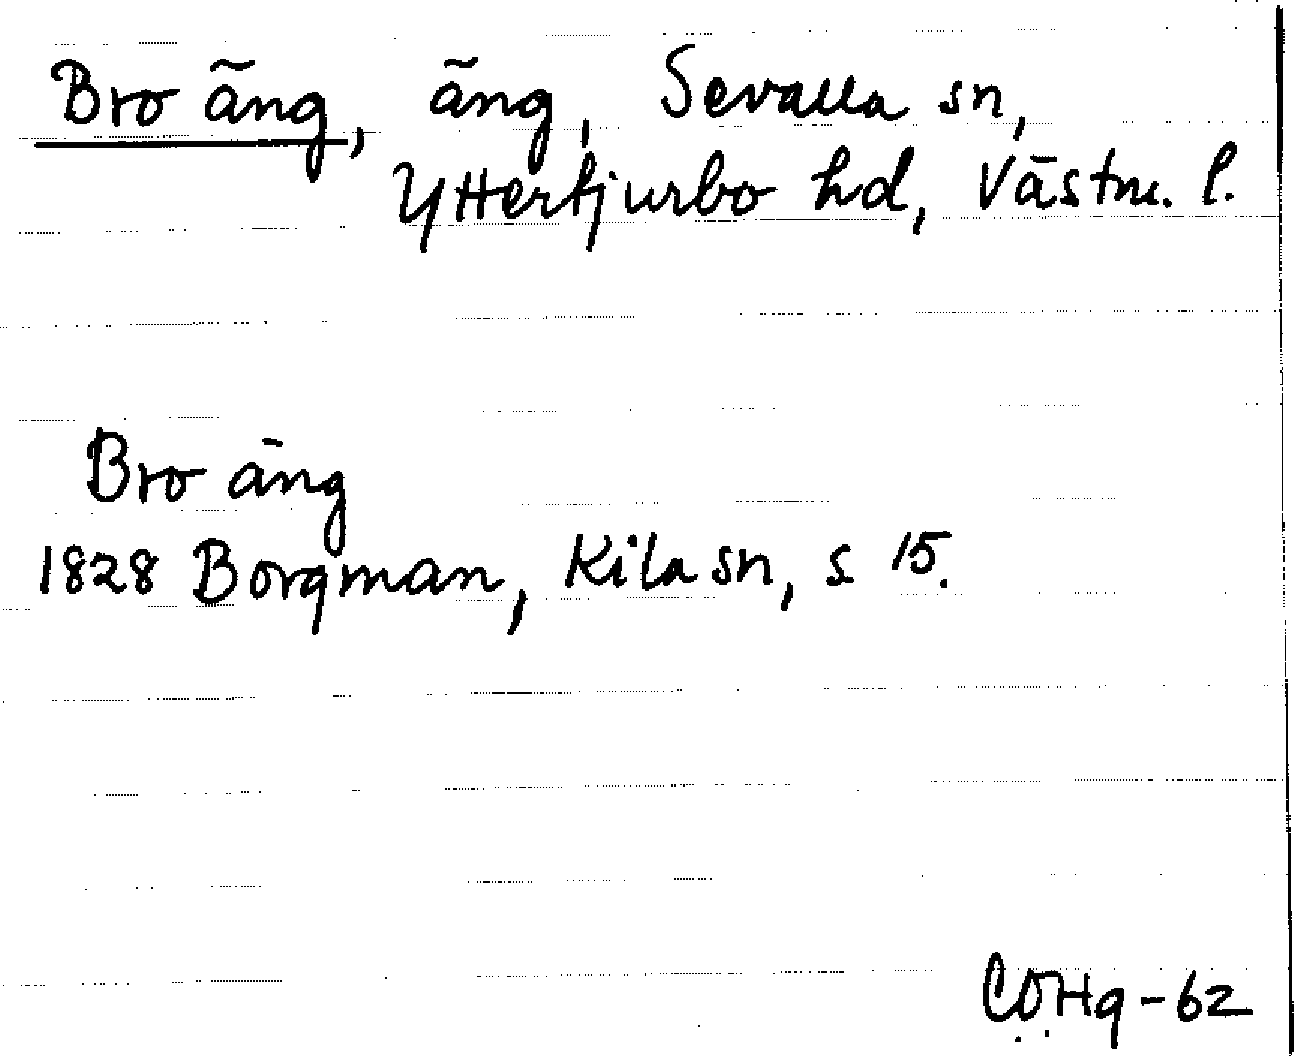 Bro äng, äng, Sevalla sn,
Yttertjurbo hd, Västm. l.
Bro äng
1828 Borgman, Kila sn, s 15.
COHg-62